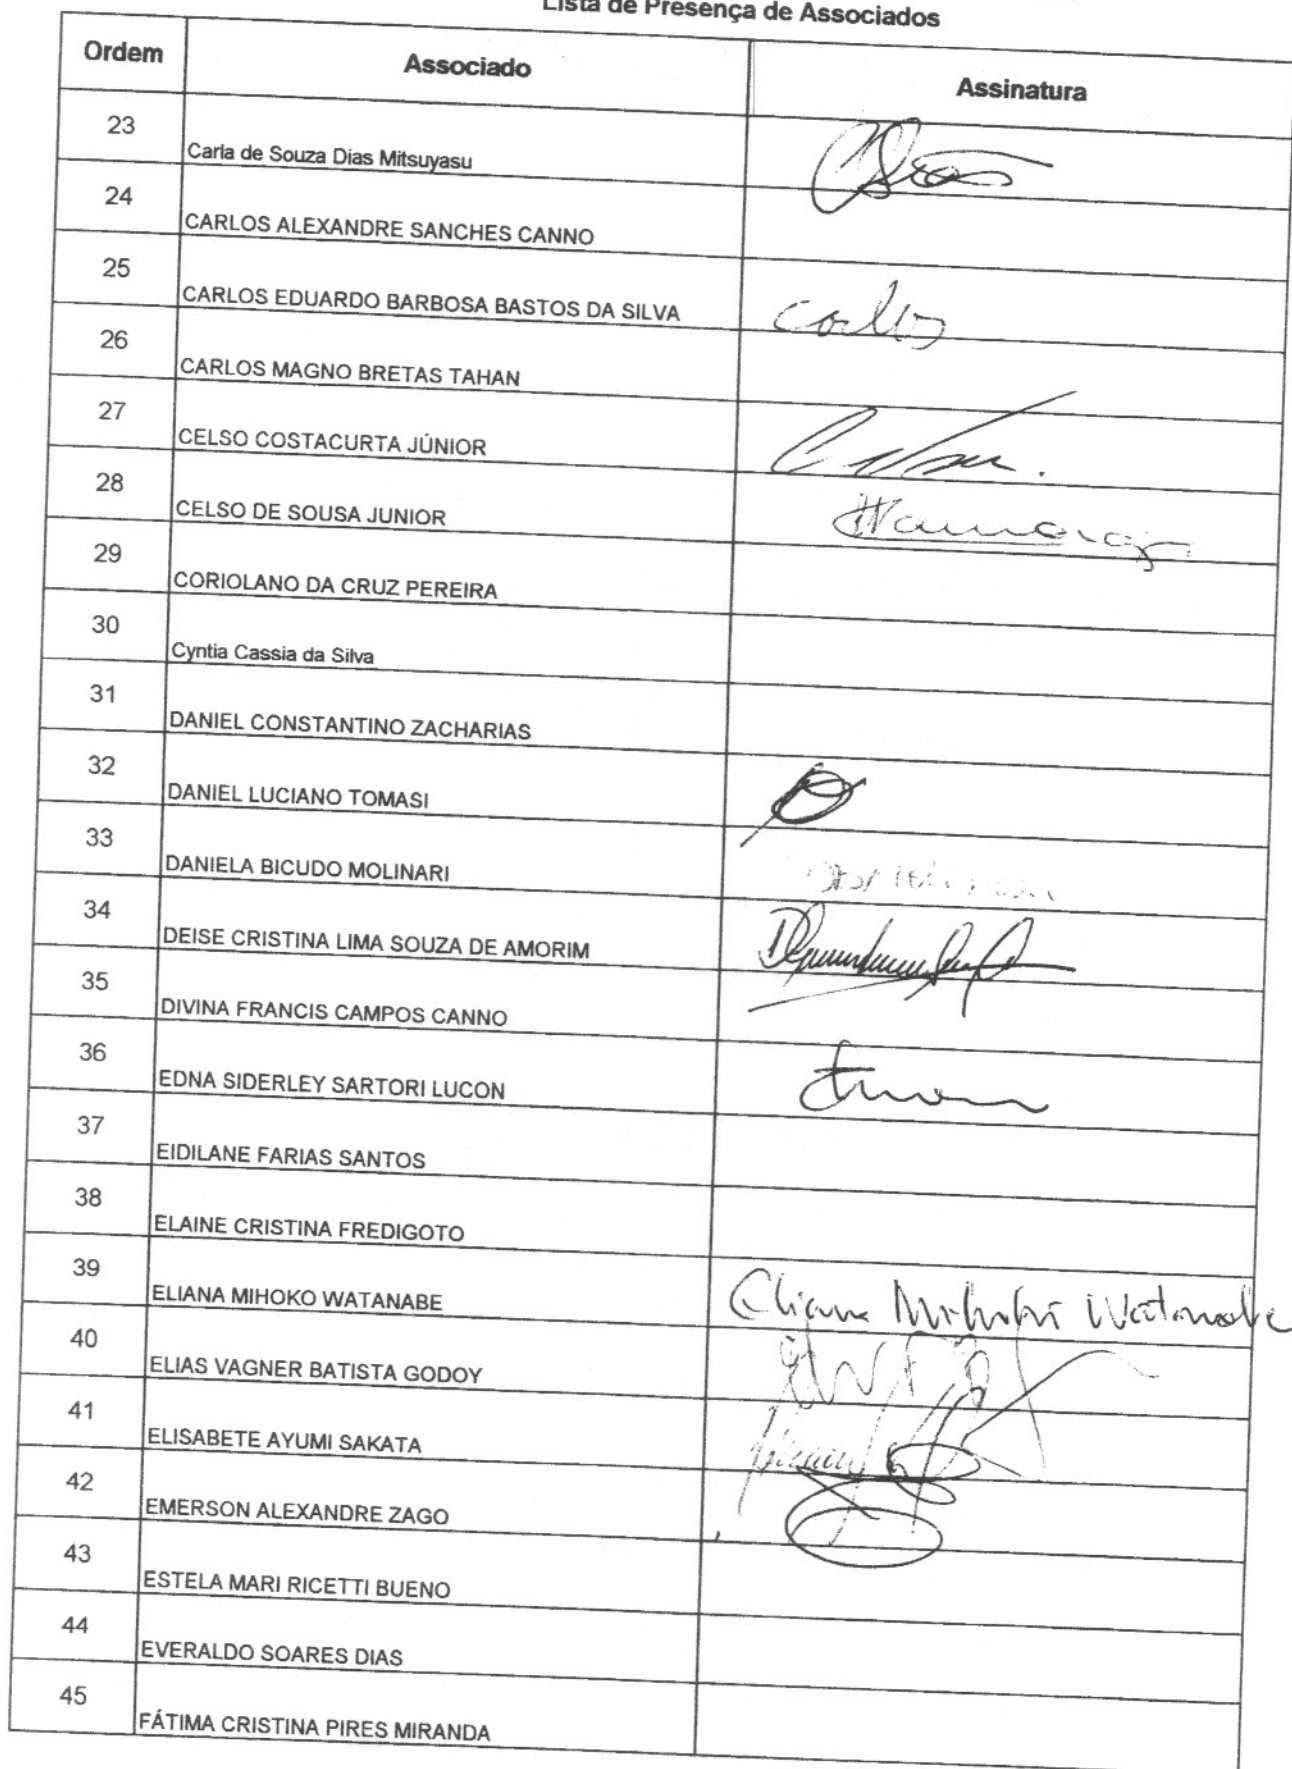 Lista de Presença de Associados
Ordem Associado Assinatura
23 Carla de Souza Dias Mitsuyasu
24 CARLOS ALEXANDRE SANCHES CANNO
25 CARLOS EDUARDO BARBOSA BASTOS DA SILVA
26 CARLOS MAGNO BRETAS TAHAN
27 CELSO COSTACURTA JÚNIOR
28 CELSO DE SOUSA JUNIOR
29 CORIOLANO DA CRUZ PEREIRA
30 Cyntia Cassia da Silva
31 DANIEL CONSTANTINO ZACHARIAS
32 DANIEL LUCIANO TOMASI
33 DANIELA BICUDO MOLINARI
34 DEISE CRISTINA LIMA SOUZA DE AMORIM
35 DIVINA FRANCIS CAMPOS CANNO
36 EDNA SIDERLEY SARTORI LUCON
37 EIDILANE FARIAS SANTOS
38 ELAINE CRISTINA FREDIGOTO
39 ELIANA MIHOKO WATANABE Eliana Mihoko Watanabe
40 ELIAS VAGNER BATISTA GODOY
41 ELISABETE AYUMI SAKATA
42 EMERSON ALEXANDRE ZAGO
43 ESTELA MARI RICETTI BUENO
44 EVERALDO SOARES DIAS
45 FÁTIMA CRISTINA PIRES MIRANDA